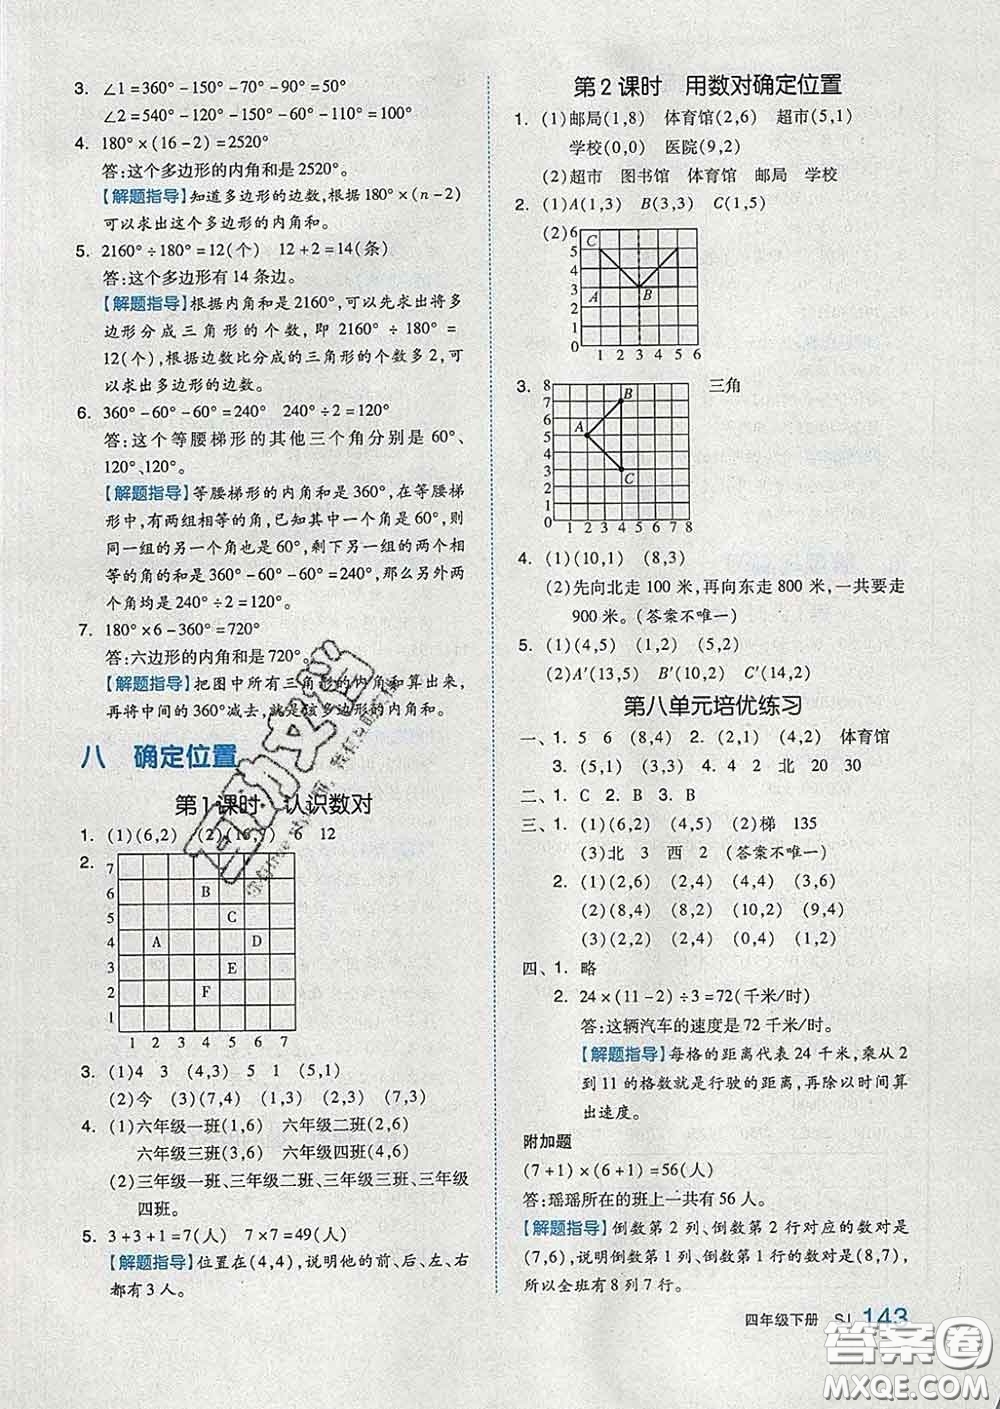 3. ∠1=360°-150°-70°-90°=50°
∠2=540°-120°-150°-60°-110°=100°
4. 180°×(16-2)=2520°
答:这个多边形的内角和是2520°。
【解题指导】知道多边形的边数,根据180°×(n-2)
可以求出多边形的内角和。
5. 2160°÷180°=12(个) 12+2=14(条)
答:这个多边形有14条边。
【解题指导】根据内角和是2160°,可以先求出将多
边形分成三角形的个数,即2160°÷180°=
12(个),根据边数比分成的三角形的个数多2,可
以求出多边形的边数。
6. 360°-60°-60°=240° 240°÷2=120°
答:这个等腰梯形的其他三个角分别是60°、
120°、120°。
【解题指导】等腰梯形的内角和是360°,在等腰梯
形中,有两组相等的角,已知其中一个角是60°,则
同一组的另一个角也是60°,剩下另外两个角的和
是360°-60°-60°=240°,那么另外两
个角均是240°÷2=120°。
7. 180°×6-360°=720°
答:六边形的内角和是720°。
【解题指导】把图中所有三角形的内角和算出来,
再将中间的360°减去,就是该多边形的内角和。
八 确定位置
第1课时 认识数对
1. (1)(6,2) (2) 6 12
2.
7
6 B
5 C
4 A D
3 E
2 F
1
1 2 3 4 5 6 7
3. (1)4 3 (4,3) 5 1 (5,1)
(2)今 (3)(7,4) (1,3) (2,3) (7,3)
4. (1)六年级一班(1,6) 六年级二班(2,6)
六年级三班(3,6) 六年级四班(4,6)
(2)三年级一班、三年级二班、三年级三班、三年级
四班。
5. 3+3+1=7(人) 7×7=49(人)
【解题指导】位置在(4,4),说明他的前、后、左、右
都有3人。
第2课时 用数对确定位置
1. (1)邮局(1,8) 体育馆(2,6) 超市(5,1)
学校(0,0) 医院(9,2)
(2)超市 图书馆 体育馆 邮局 学校
2. (1)A(1,3) B(3,3) C(1,5)
(2)
6
5 C
4
3
2 A B
1
0 1 2 3 4 5 6
3. 三角
8
7 B
6
5 A
4
3 C
2
1
0 1 2 3 4 5 6 7 8
4. (1)(10,1) (8,3)
(2)先向北走100米,再向东走800米,一共要走
900米。(答案不唯一)
5. (1)(4,5) (1,2) (5,2)
(2)A′(13,5) B′(10,2) C′(14,2)
第八单元培优练习
一、1. 5 6 (8,4) 2. (2,1) (4,2) 体育馆
3. (5,1) (3,3) 4. 4 2 北 20 30
二、1. C 2. B 3. B
三、1. (1)(6,2) (4,5) (2)梯 135
(3)北 3 西 2 (答案不唯一)
2. (1)(2,6) (2,4) (4,4) (3,6)
(2)(8,4) (8,2) (10,2) (9,4)
(3)(2,2) (2,4) (0,4) (1,2)
四、1. 略
2. 24×(11-2)÷3=72(千米/时)
答:这辆汽车的速度是72千米/时。
【解题指导】每格的距离代表24千米,乘从2
到11的格数就是行驶的距离,再除以时间算
出速度。
附加题
(7+1)×(6+1)=56(人)
答:瑶瑶所在的班上一共有56人。
【解题指导】倒数第2列、倒数第2行对应的数对是
(7,6),说明倒数第1列、倒数第1行的数对是(8,7),
所以全班有8列7行。
四年级下册 SJ 143
答案圈
MXQE.COM